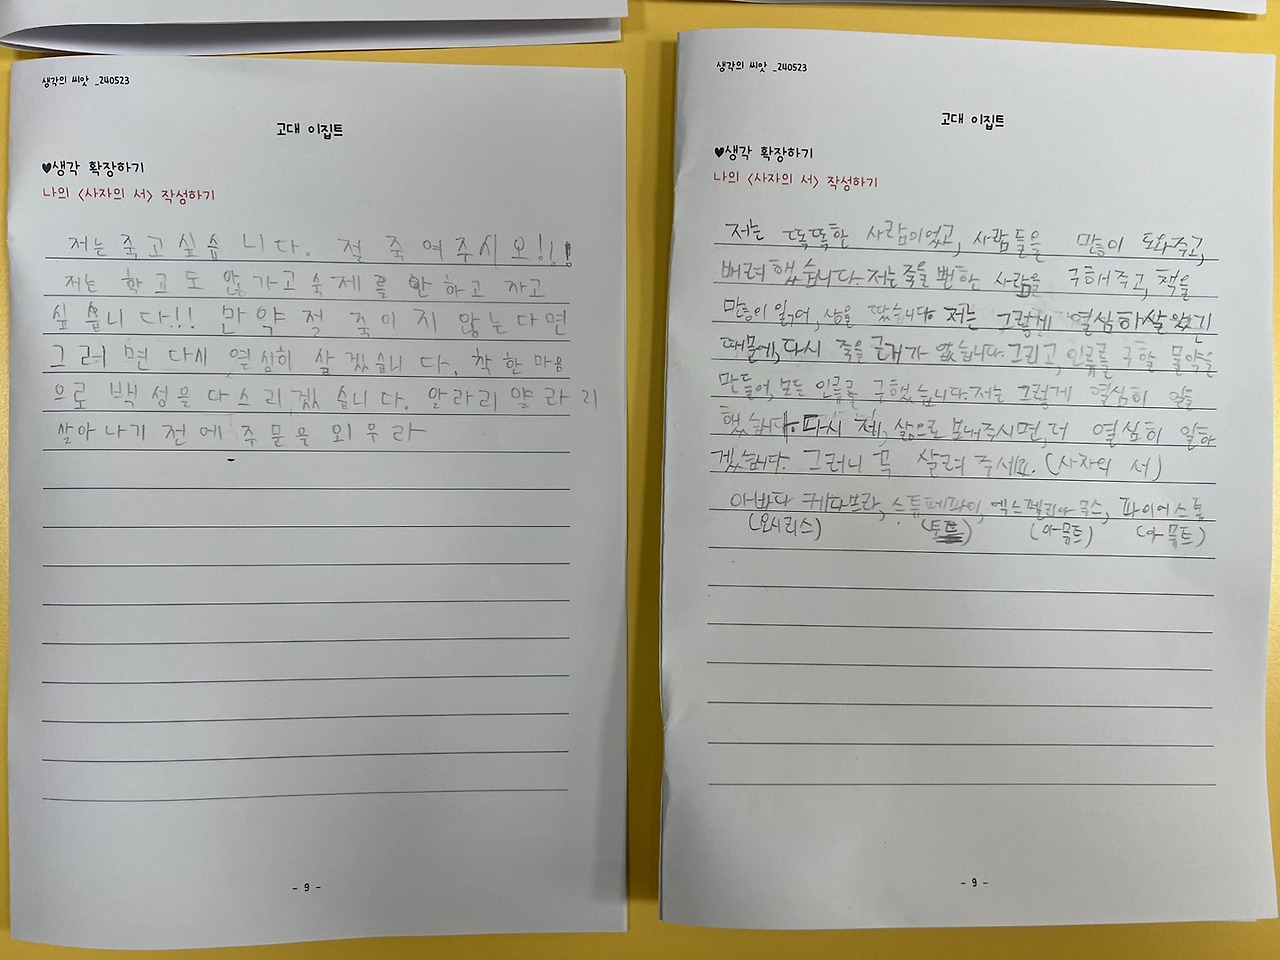 생각의 씨앗 _240523
고대 이집트
♥생각 확장하기
나의 <사자의 서> 작성하기
저는 죽고싶습니다. 절 죽여주시오!!!
저는 학교도 않가고 숙제를 안하고 자고
싶습니다!! 만약 절 죽이지 않는다면
그러면 다시 열심히 살겠습니다. 착한마음
으로 백성을 다스리겠습니다. 알라리 얄라리
살아나기 전에 주문을 외우라
- 9 -
생각의 씨앗 _240523
고대 이집트
♥생각 확장하기
나의 <사자의 서> 작성하기
저는 똑똑한 사람이었고, 사람들을 많이 도와주고,
배려했습니다. 저는 죽을뻔한 사람을 구해주고, 책을
많이 읽어, 상을 땄습니다. 저는 그렇게 열심히살았기
때문에, 다시 죽을 근거가 없습니다. 그리고, 인류를 구할 물약을
만들어, 모든 인류를 구했습니다. 저는 그렇게 열심히 일을
했습니다. 다시 제, 삶으로 보내주시면, 더 열심히 일하
겠습니다. 그러니 꼭 살려 주세요. (사자의 서)
아바다 케다브라, 스튜페파이, 엑스펠리아르무스, 파이어스톰
(오시리스) (토트) (아뭍트) (아뭍트)
- 9 -